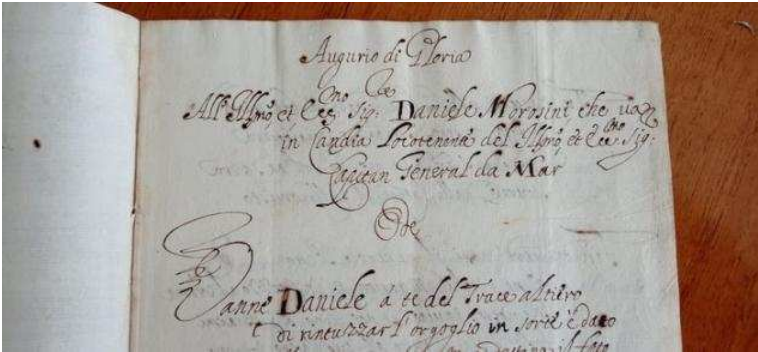 Augurio di Gloria
All' Illmo, et Ecc.mo Sig. Daniele Morosini che va
in Candia Locotenente del Illmo, et Ecc.mo Sig.
Capitan General da Mar
Ode
Vanne Daniele a te del Trace altiero
Di rintuzzar l'orgoglio in sorte è dato